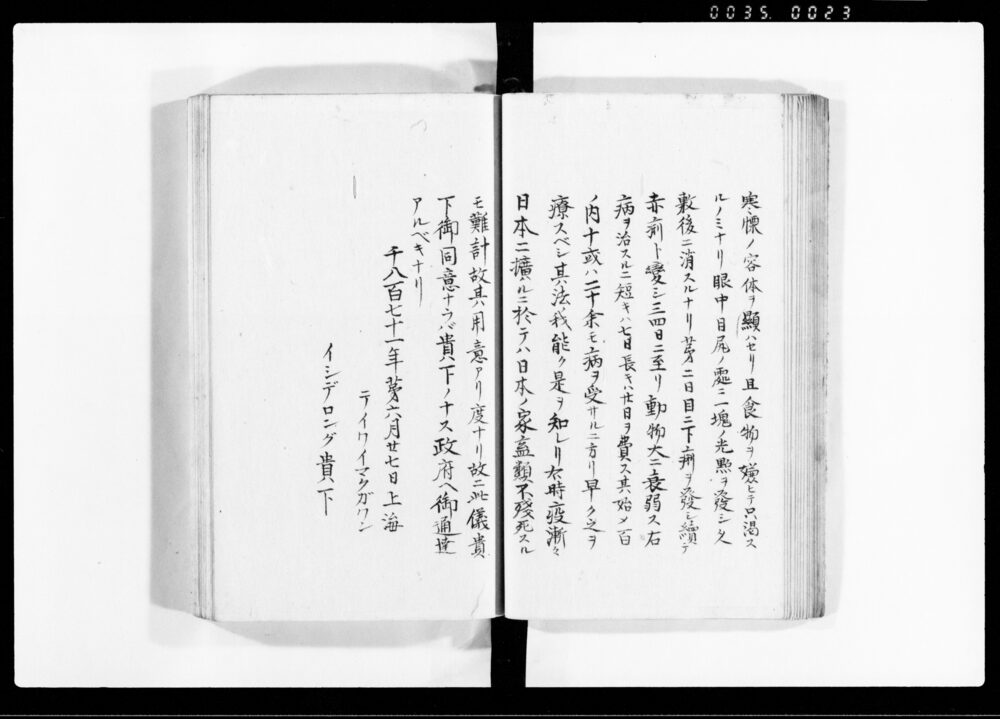 0035. 0023
寒慄ノ容体ヲ顕ハセリ且食物ヲ嫌ヒテ只渇ス
ルノミナリ眼中目尻ノ處ニ一塊ノ光點ヲ發シ丈
数後ニ消スルナリ第二日目ニ下痢ヲ發シ續テ
赤痢ト変シ三四日ニ至リ動物大ニ衰弱ス右
病ヲ治スルニ短キハ七日長キハ廿日ヲ費ス其始メ百
ノ内十或ハ二十余モ病ヲ受サルニ方リ早ク之ヲ
療スベシ其法我能ク是ヲ知レリ右時疫漸々
日本ニ擴ハルニ於テハ日本ノ家畜類不残死スル
モ難計故其用意アリ度ナリ故ニ此儀貴
下御同意ナラバ貴下ノナス政府ヘ御通達
アルベキナリ
千八百七十一年第六月廿七日上海
テイワイマクガワン
イシデロング貴下